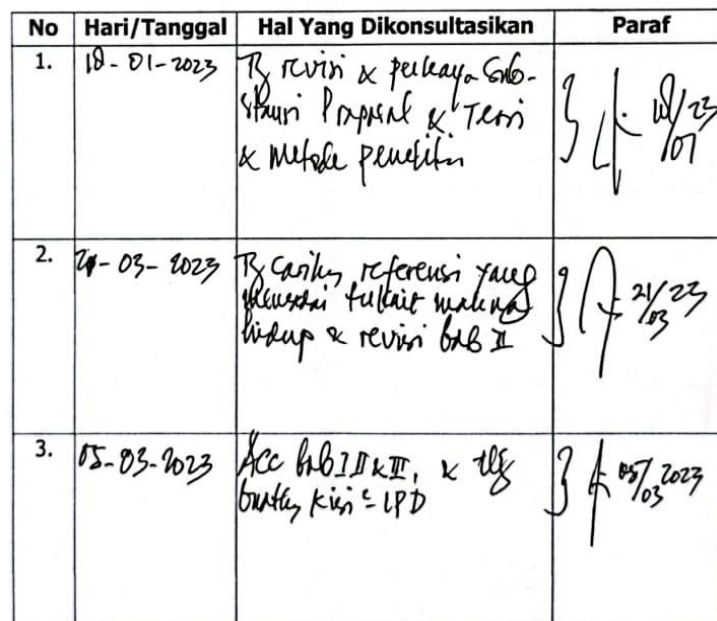 No Hari/Tanggal Hal Yang Dikonsultasikan Paraf
1. 18-01-2023 revisi & perkaya sub-
stansi Proposal & Teori
& metode penelitian
18/23
01
2. 21-03-2023 carikan referensi yang
terkait makna
hidup & revisi bab II
21/23
03
3. 05-03-2023 Acc bab I II & III, &
buatkan kisi2 LPD
05/2023
03